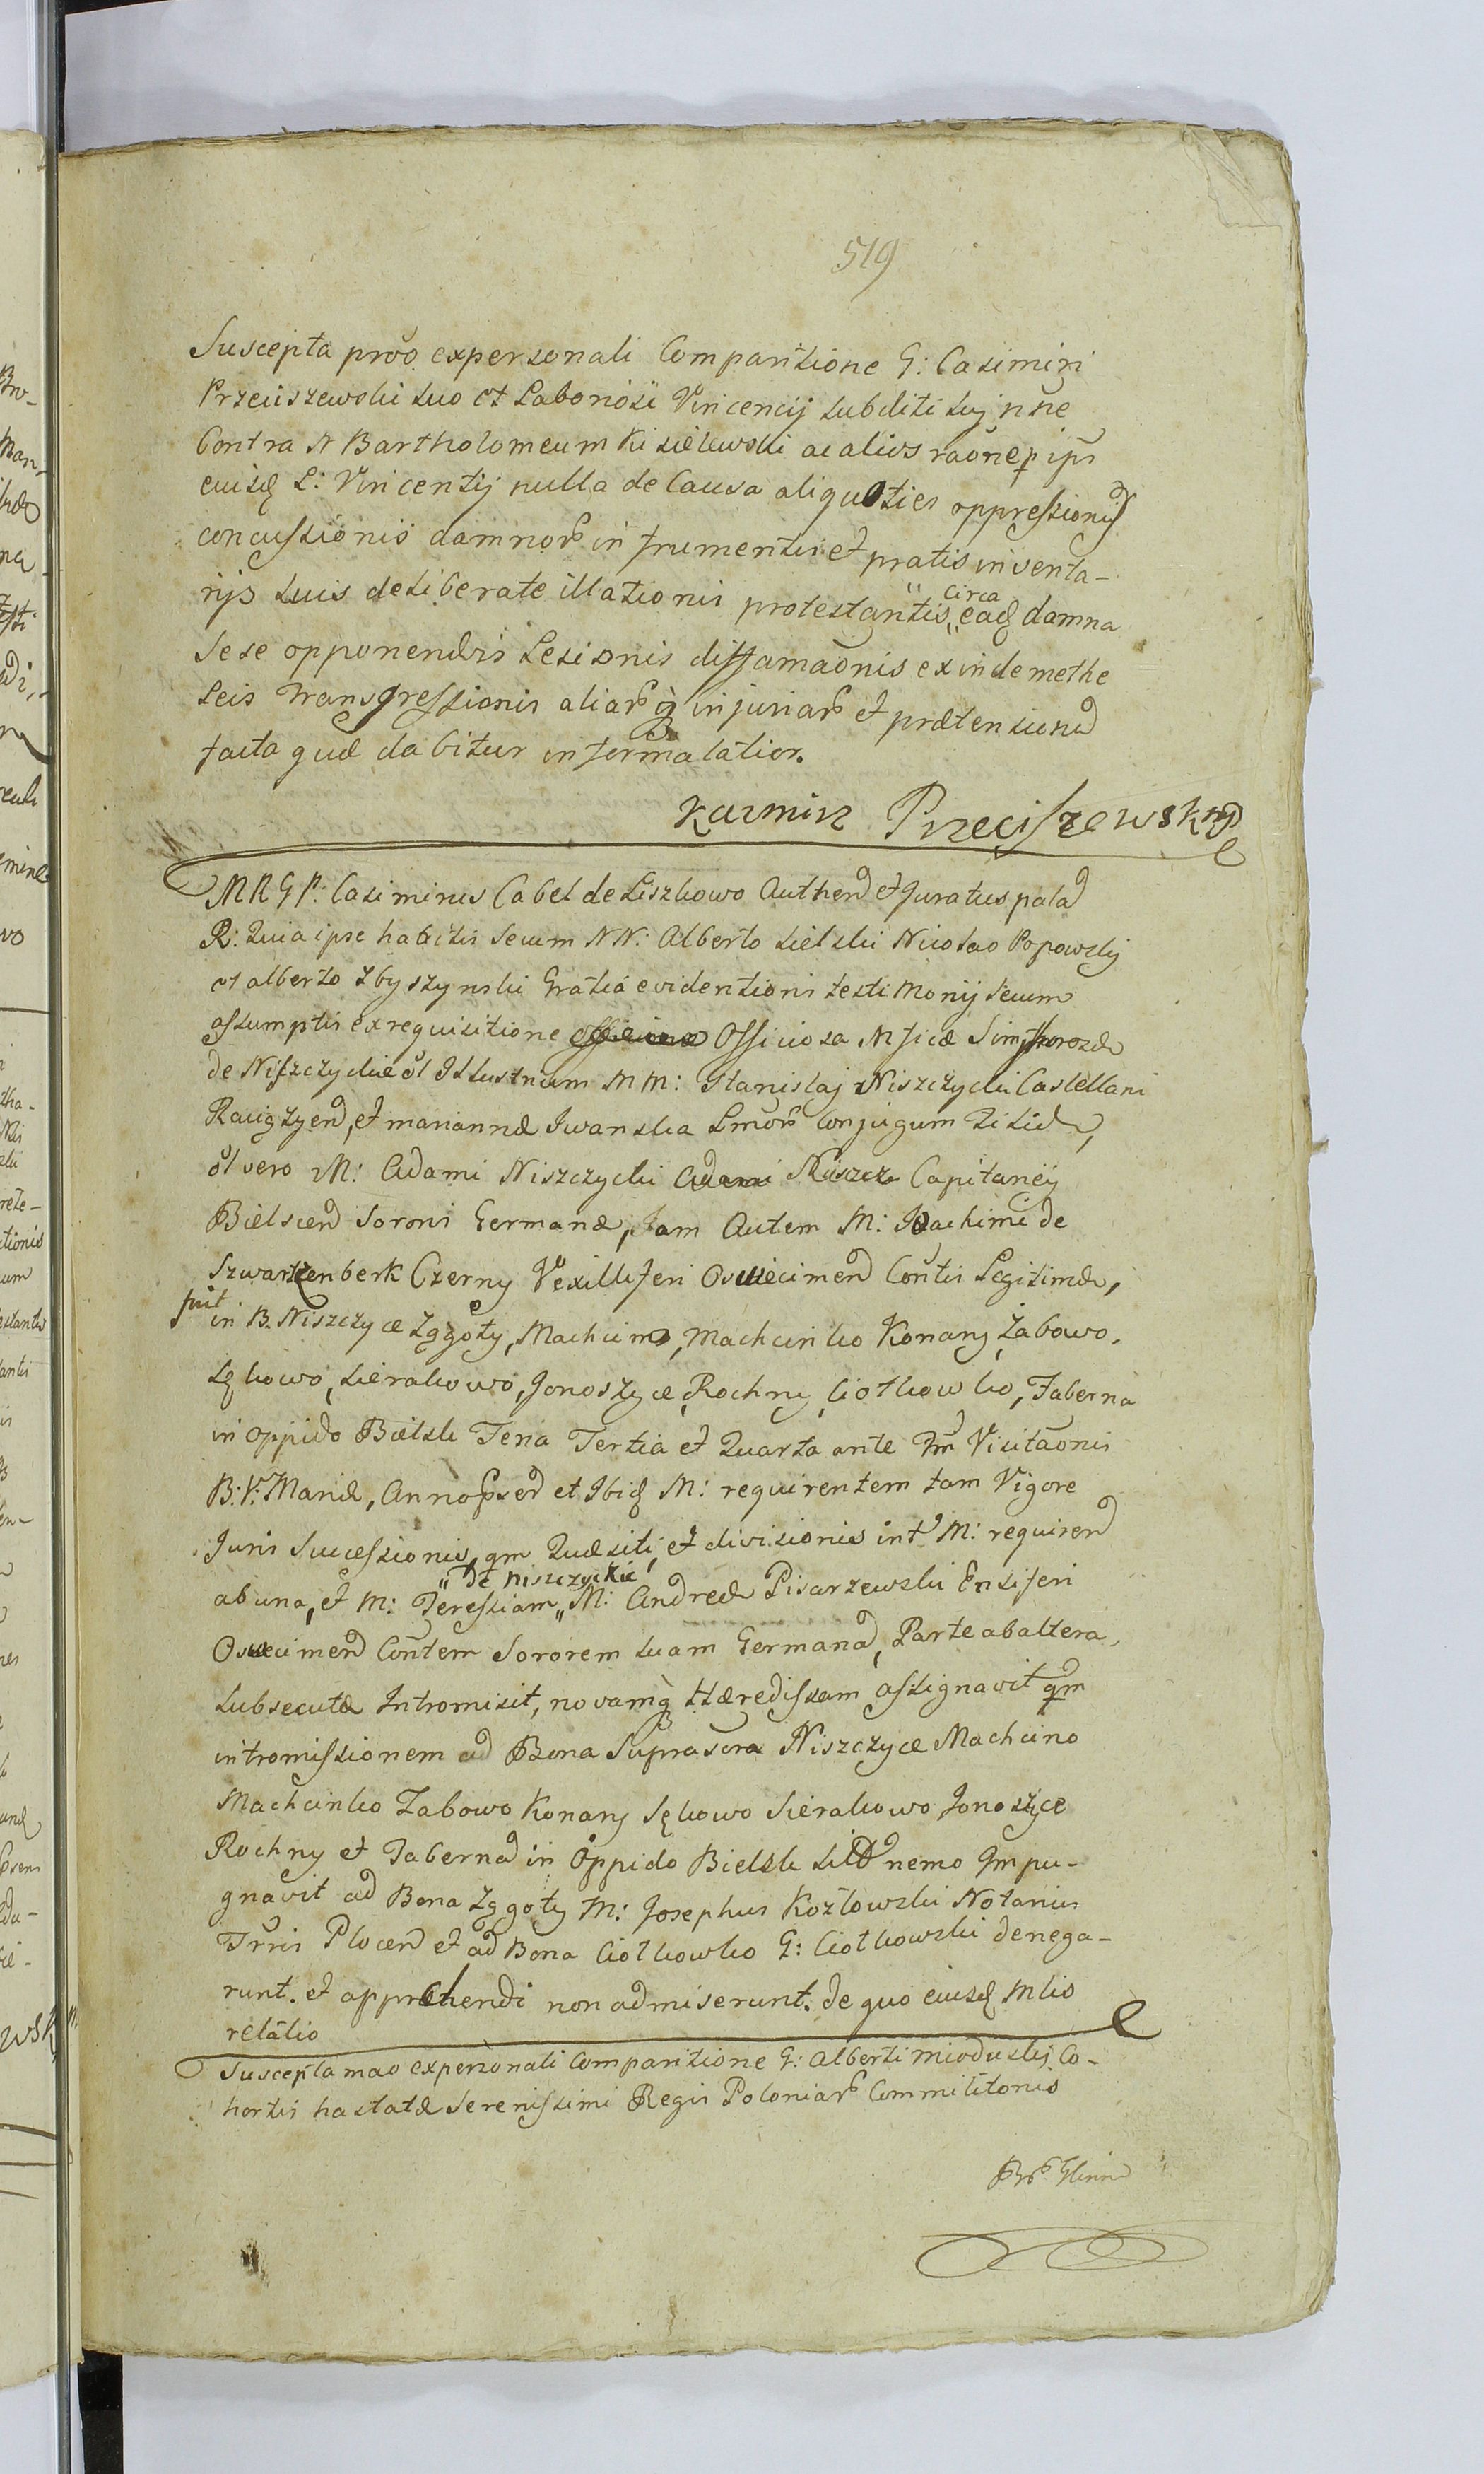 519
Suscepta prõo expersonali Comparitione G: Casimiri
Przeciszewski suo et Laboriosi Vincencij subditi sui nñe
Contra N Bartholomeum Kisielewski ac alios raõne ipi
eiusd L: Vincentij nulla de Causa aliquoties oppressionis
concussionis damnor in frumentis et pratis inventa-
rijs suis deliberate illationis protestantis „ Circa ead damna
sese opponendris Lesionis diffamaõnis exinde methe
Leis transgressionis aliar q injuriar et prætension
facta quæ dabitur in forma latior.
Kazmirz Przeciszewski
MRGP: Casimirus Cabel de Liszkowo Authen et Juratus palad
R: Quia ipse habitis secum NN: Alberto Sielski Nicolao Popowskij
et alberto Zbyszynski Gratia evidentioris testimonij secum
assumptis ex requisitione Officiosa Mficæ Simphorozæ
de Niszczyckie ol Illustrium MM: Stanislaj Niszczycki Castellani
Raciązen, et mariannæ Iwanska Lmor Conjugum Filiæ,
ol vero M: Adami Niszczycki Adami Niszcz Capitanei
Bielscen Sorori Germanæ, Jam Autem M: Joachimi de
Szwarzenberk Czerny Vexilliferi Osviecimen Contis Legitimæ,
fuit in B. Niszczyce Zągoty, Machcino, Machcinko Konary, Zabowo,
Sękowo, Sierakowo, Jonoszyce, Rochny, Ciołkowko, Taberna
in oppido Bielsk Feria Tertia et Quarta ante Fm Visitaõnis
B: V: Mariæ, Anno Prd et Ibid M: requirentem tam Vigore
Juris Successionis, qm Quæsiti, et divisionis int M: requiren
ab una, et M: Teressiam „ de Niszczyckie „ M: Andreæ Pisarzewski Ensiferi
Osviecimen Contem Sororem suam Germana, Parte ab altera,
subsecutæ Intromisit, novamq Hæredissam assignavit qm
intromissionem ad Bona Suprascra Niszczyce Machcino
Machcinko Zabowo Konary Sękowo Sierakowo Jonoszyce
Rochny et Taberna in Oppido Bielsk sitd nemo Impu-
gnavit ad Bona Zągoty M: Josephus Kozłowski Notarius
Trris Plocen et ad Bona Ciołkowko G: Ciołkowski denega-
runt. et apprehendi non admiserunt. de quo eiusd Mlio
relatio
Suscepta mao expersonali Comparitione G: Alberti Mioduskij Co-
hortis hastatæ Serenissimi Regis Poloniar Commilitonis